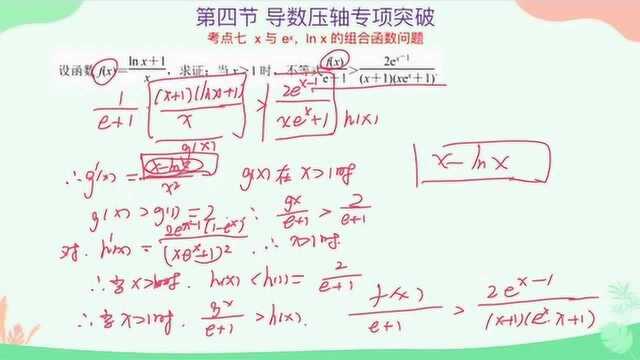 第四节 导数压轴专项突破
考点七 x 与 eˣ，ln x 的组合函数问题
设函数 f(x)=(ln x+1)/x，求证：当 x>1 时，不等式 f(x)/(e+1)>2eˣ⁻¹/((x+1)(xeˣ+1))
1/(e+1) · (x+1)(lnx+1)/x > 2eˣ⁻¹/(xeˣ+1) h(x)
g(x)
∴g'(x)=(x-lnx)/x² g(x) 在 x>1时 x-lnx
g(x)>g(1)=2 ∴ gx/(e+1) > 2/(e+1)
对. h'(x)=2eˣ⁻¹(1-eˣ)/(xeˣ+1)² ∴x>1时.
∴当x>1时. h(x)<h(1)=2/(e+1)
∴当x>1时. gx/(e+1) >h(x). f(x)/(e+1) > 2eˣ⁻¹/((x+1)(eˣ·x+1))